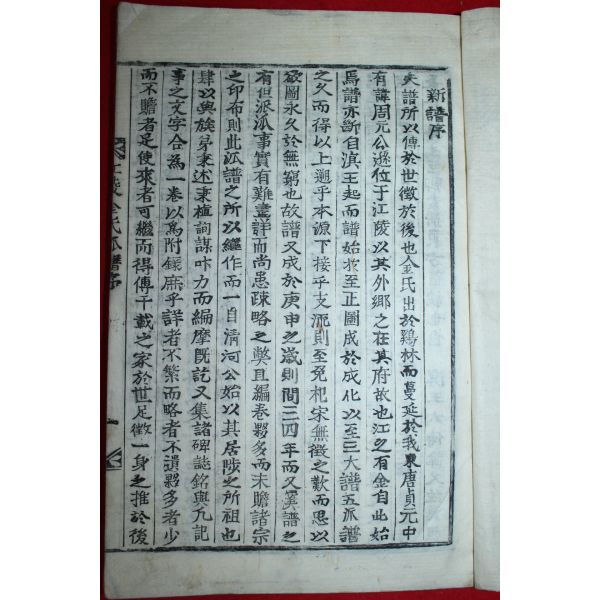 新譜序
夫譜所以傳於世徵於後也金氏出於鷄林而蔓延於我東唐貞元中
有諱周元公遜位于江陵以其外鄉之在其府故也江之有金自此始
焉譜亦斷自溟王起而譜始於至正圖成於成化以至三大譜五派譜
之久而得以上遡乎本源下接乎支流則至免杞宋無徵之歎而思以
圖永久於無窮也故譜又成於庚申之歲則間三四年而又溪譜之
有但派派事實有難盡詳而尚患疎略之獘且編卷夥多而未贍諸宗
之印布則此派譜之所以繼作而一自清河公始以其居陜之所祖也
肆以與族弟秉述秉植詢謀咔力而編摩旣訖又集諸碑誌銘與凡記
事之文字合爲一卷以爲附錄庶乎詳者不繁而略者不遺夥多者少
而不贍者足使來者可繼而得傳千載之家於世足徵一身之推於後
江陵金氏派譜序
一